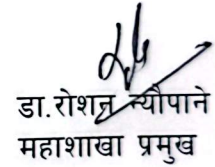 डा.रोशन न्यौपाने
महाशाखा प्रमुख